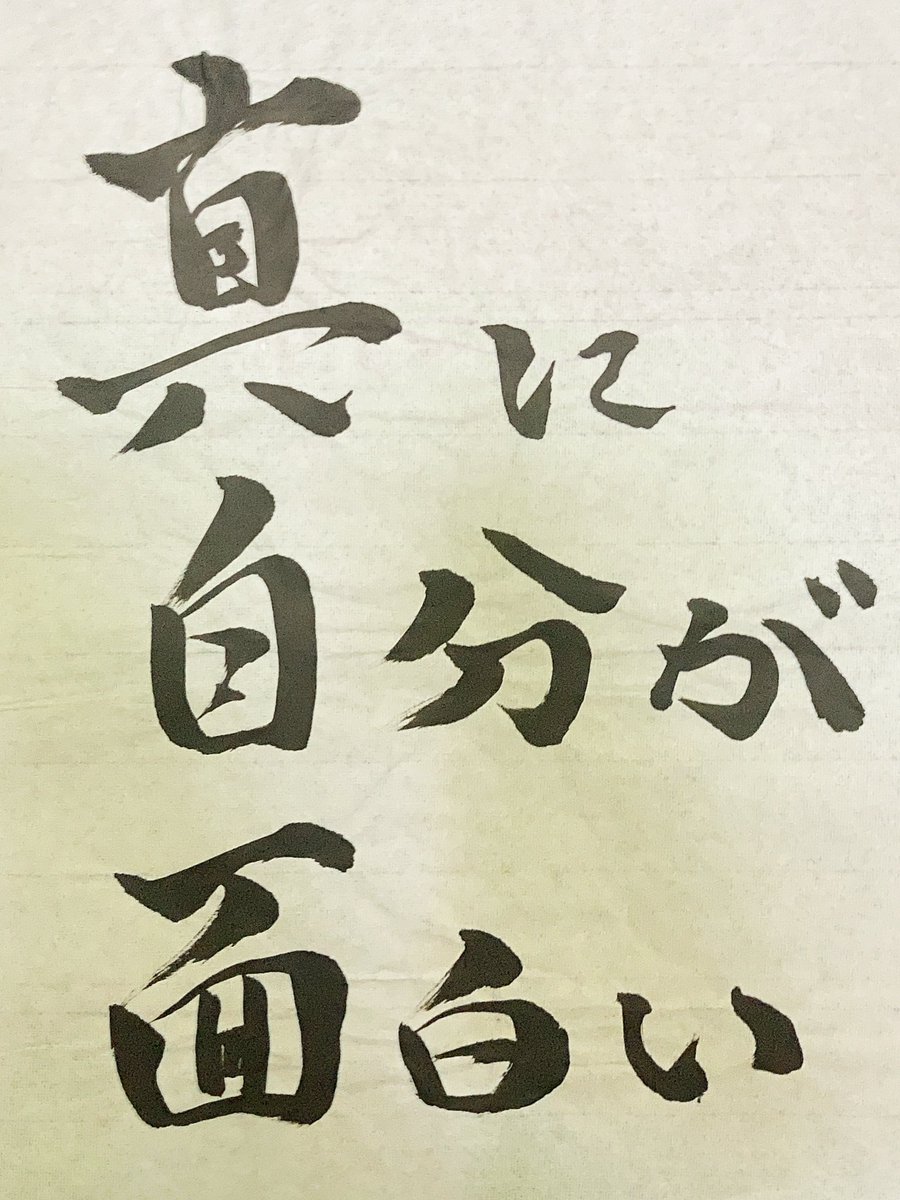 真に
自分が
面白い